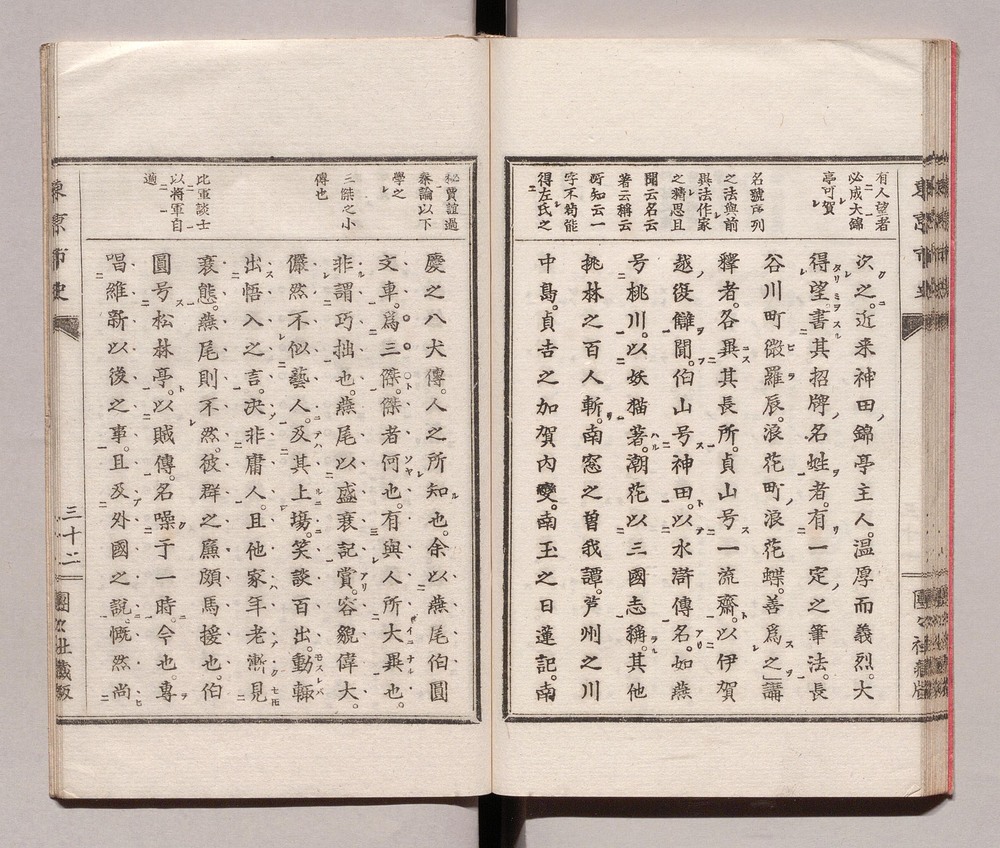 有人望者
必成大錦
亭可賀
名號齊列
之法與前
異法作家
之精思且
聞云名云
著云稱云
所知云一
字不苟能
得左氏之
次之。近来神田錦亭主人。温厚而義烈。大
得望。書其招牌名甡者。有一定之筆法。長
谷川町微羅辰。浪花町浪花蝶。善爲之」講
釋者。各異其長所。貞山号一流齋。以伊賀
越復讎聞。伯山号神田。以水滸傳名。如燕
号桃川。以妖猫著。潮花以三國志稱。其他
桃林之百人斬。南窓之曽我譚。芦州之川
中島。貞吉之加賀内變。南玉之日蓮記。南
秘賈誼過
秦論以下
學之
三傑之小
傳也
比軍談士
以將軍自
適
慶之八犬傳。人之所知也。余以燕尾伯圓
文車。爲三傑。傑者何也。有與人所大異也。
非謂巧拙也。燕尾以盛衰記賞。容貌偉大。
儼然不似藝人。及其上場。笑談百出。動輙
出悟入之言。决非庸人。且他家年老漸見
衰態。燕尾則不然。彼群之廉頗馬援也。伯
圓号松林亭。以賊傳。名噪于一時。今也。專
唱維新以後之事。且及外國之説。慨然尚
東京市史
三十二